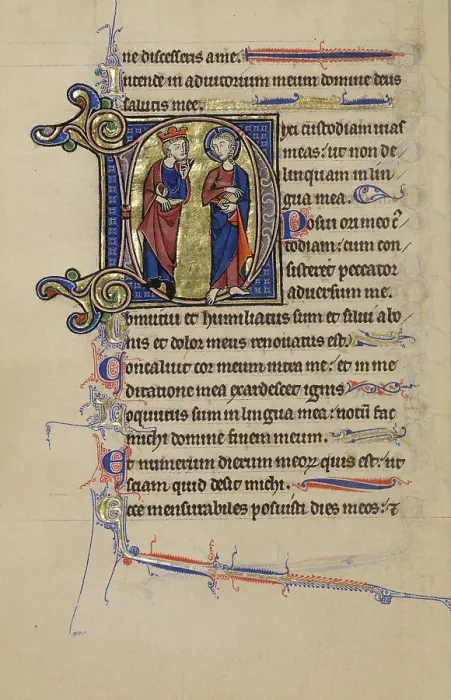 ne discesseris a me.
Intende in adiutorium meum domine deus
salutis mee.
Dixi custodiam uias
meas: ut non de
linquam in lin
gua mea.
Posui ori meo c̄
todiam: cum con
sisteret peccator
aduersum me.
Obmutui et humiliatus sum et silui a bo
nis et dolor meus renouatus est.
Concaluit cor meum intra me: et in me
ditatione mea exardescet ignis
Loquutus sum in lingua mea: notū fac
michi domine finem meum.
Et numerum dierum meoꝝ quis est: ut
sciam quid desit michi.
Ecce mensurabiles posuisti dies meos: ⁊